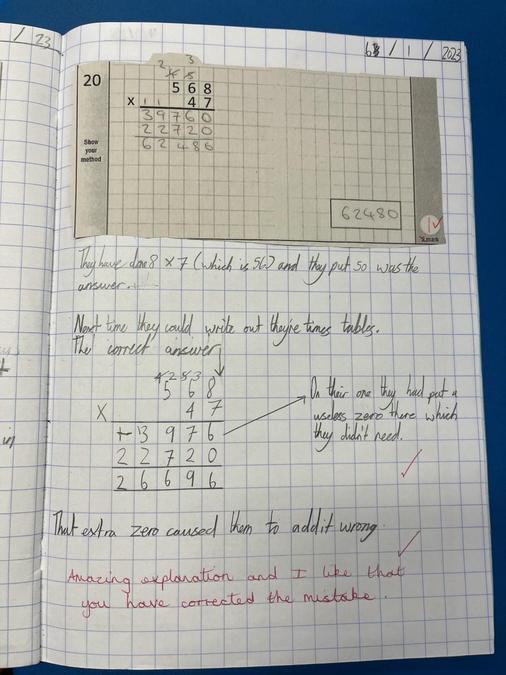 23
63 / 1 / 2023
20
2 3
4 5
5 6 8
x 1 1 4 7
3 9 7 6 0
2 2 7 2 0
6 2 4 8 0
Show
your
method
62480
They have done 8 x 7 (which is 56) and they put 50 was the
answer.
Next time they could write out theyre times tables.
The correct answer
4 2 5 3
5 6 8
X 4 7
+ 3 9 7 6
2 2 7 2 0
2 6 6 9 6
On their one they had put a
useless zero there which
they didn't need.
That extra zero caused them to add it wrong.
Amazing explanation and I like that
you have corrected the mistake.